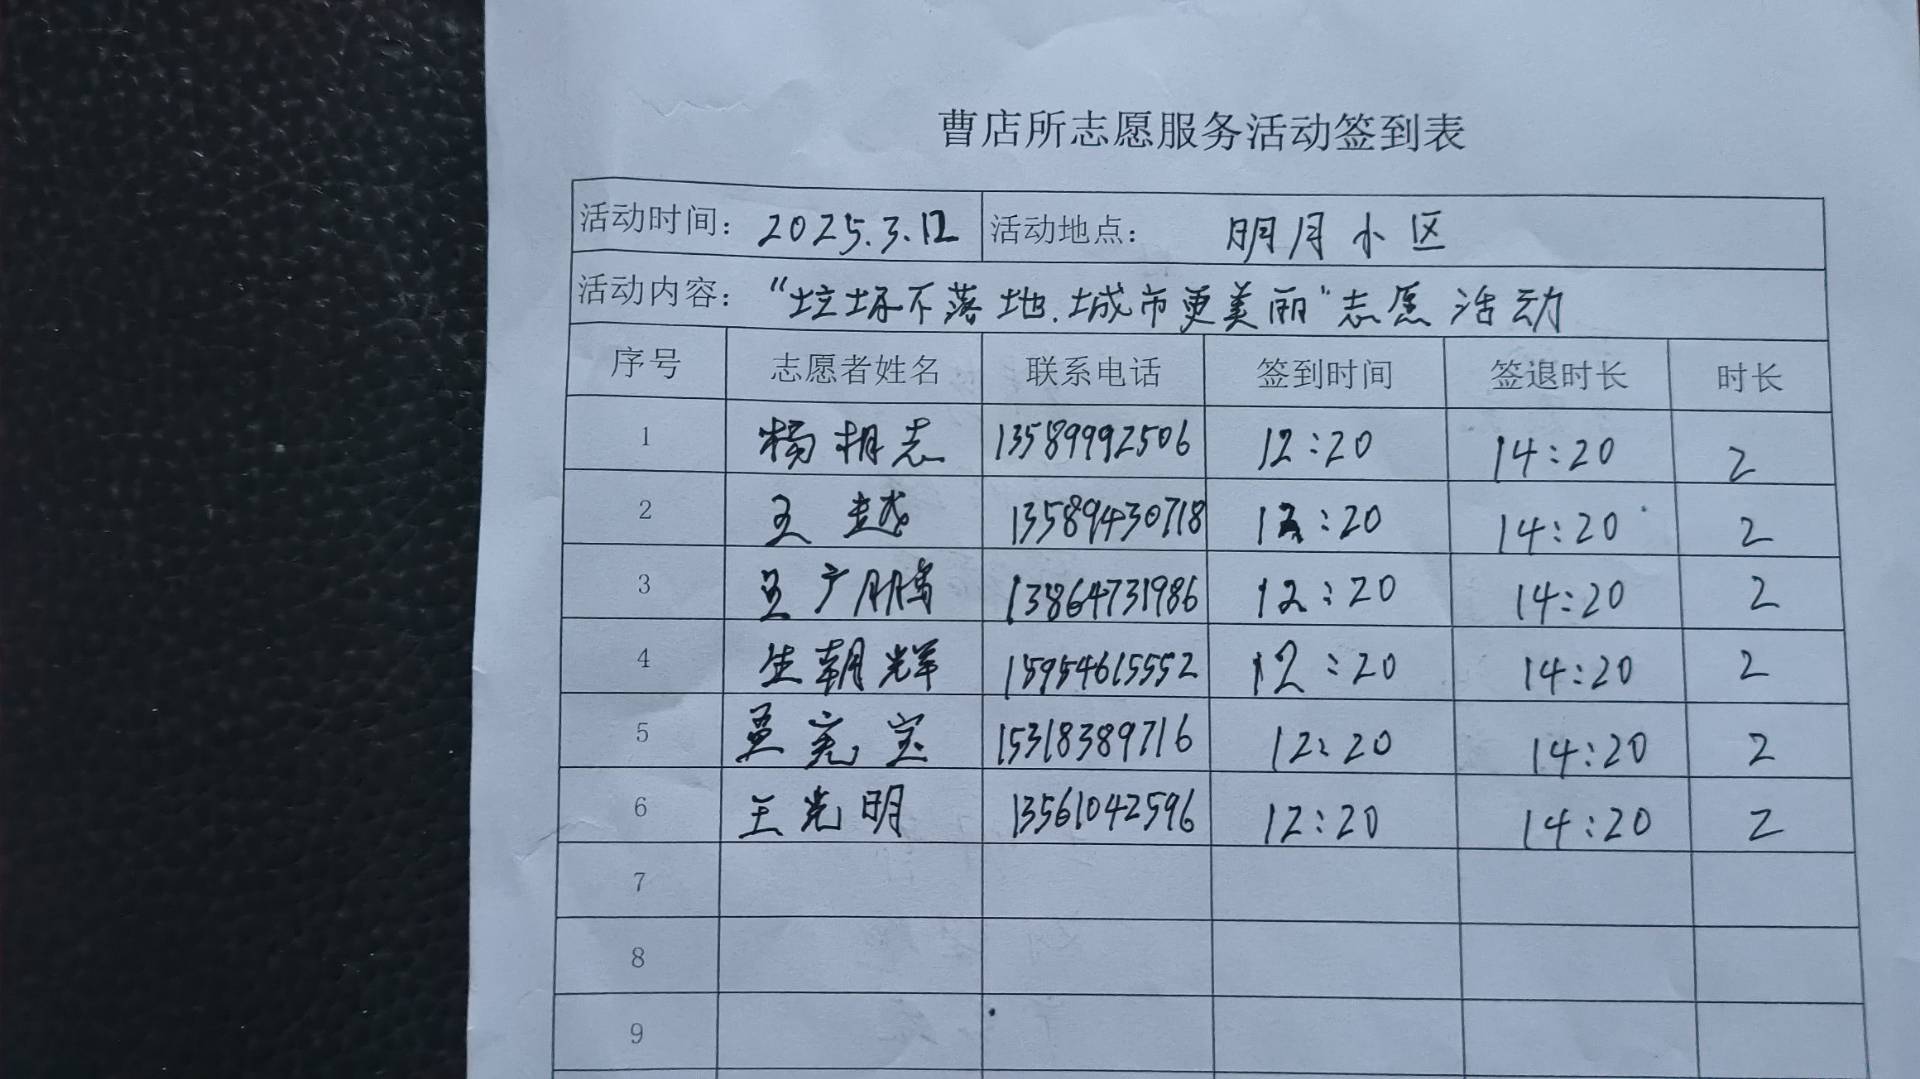 曹店所志愿服务活动签到表
活动时间: 2025.3.12 活动地点: 明月小区
活动内容: “垃圾不落地.城市更美丽”志愿活动
序号 志愿者姓名 联系电话 签到时间 签退时长 时长
1 杨相志 13589992506 12:20 14:20 2
2 王越 13589430718 12:20 14:20 2
3 王广鹏 13864731986 12:20 14:20 2
4 生朝辉 15954615552 12:20 14:20 2
5 孟宪宝 15318389716 12:20 14:20 2
6 王光明 13561042596 12:20 14:20 2
7
8
9